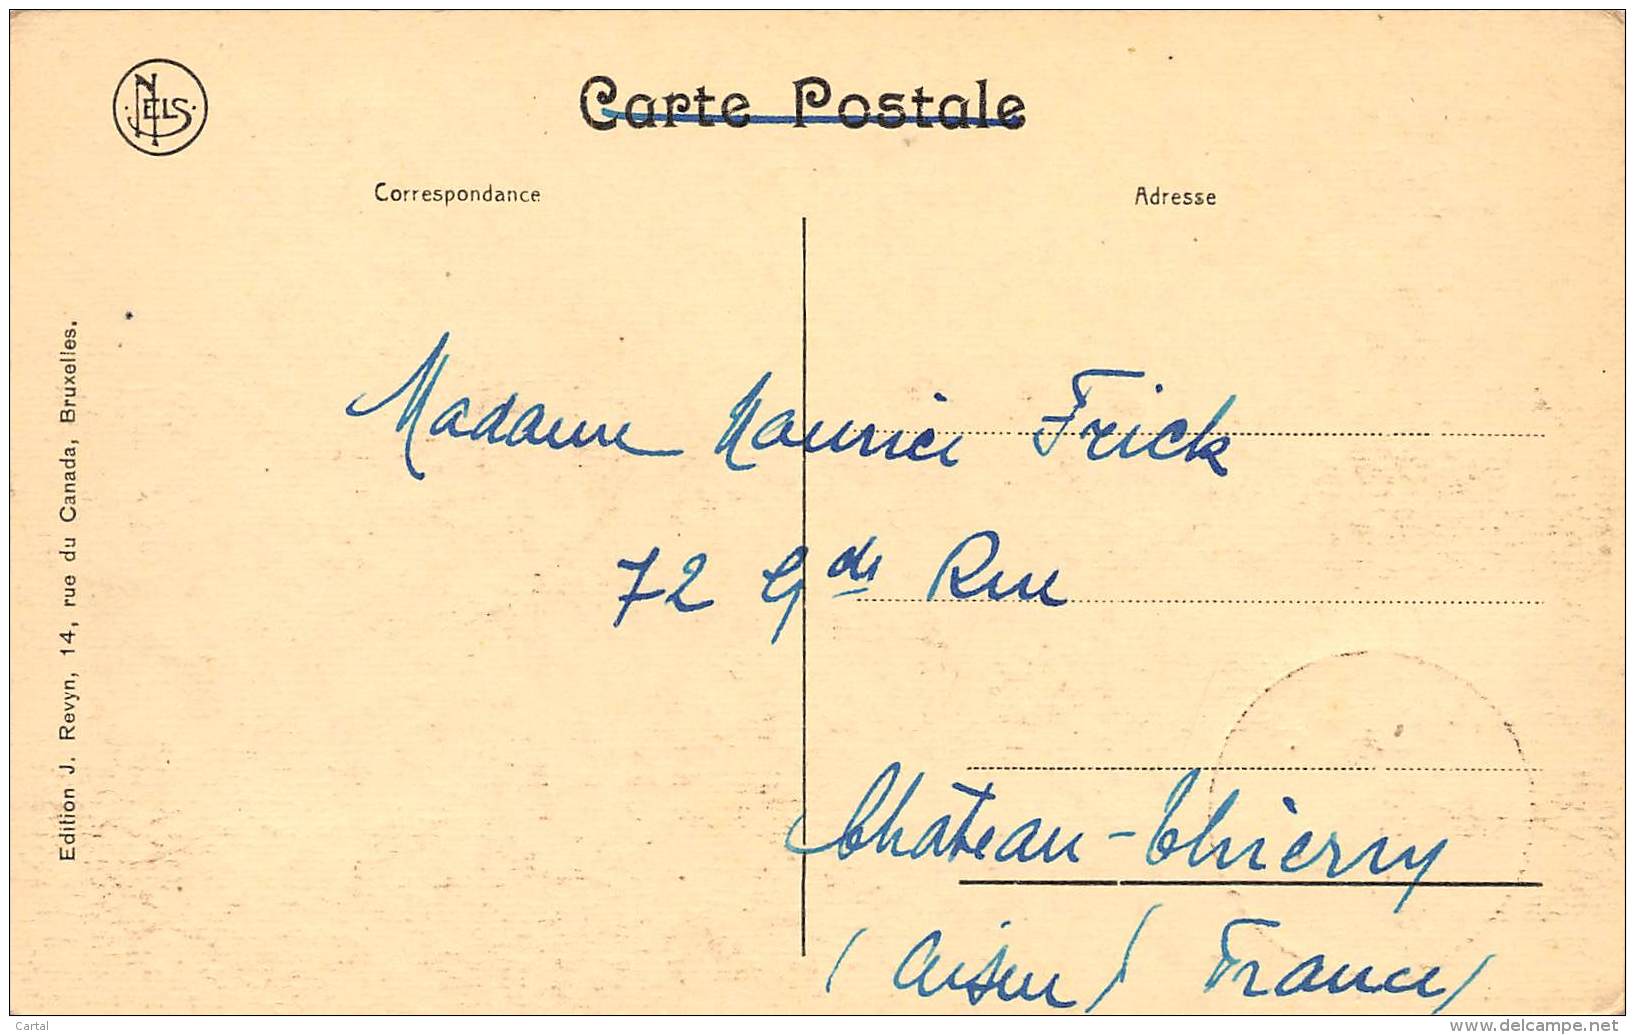 NELS
Carte Postale
Correspondance
Adresse
Madame Maurice Frick
72 Gde Rue
Château-Thierry
(Aisne) France
Edition J. Revyn, 14, rue du Canada, Bruxelles.
Cartal
www.delcampe.net